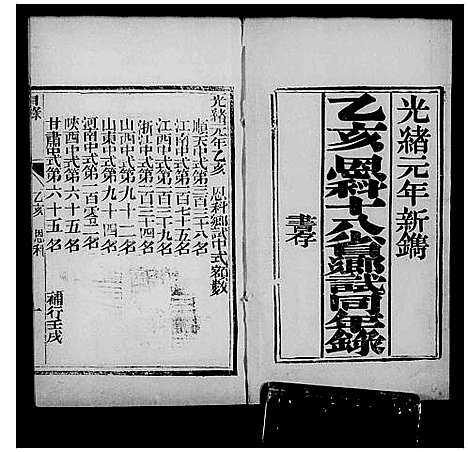 光緒元年新鐫
乙亥恩科十八省鄉試同年錄
書存
光緒元年乙亥 恩科鄉試中式額數
順天中式第三百二十八名
江南中式第一百七十五名
江西中式第一百二十九名
浙江中式第一百二十四名
山西中式第九十二名
山東中式第九十四名
河南中式第一百零二名
陝西中式第六十五名
甘肅中式第六十五名
目錄
乙亥 恩科
一
補行壬戌